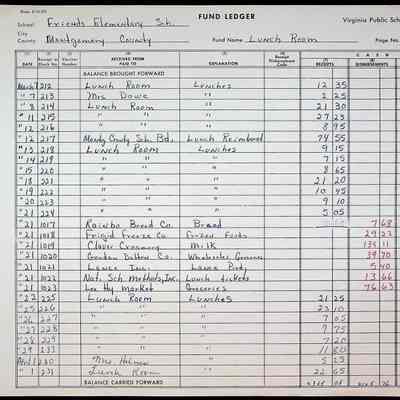 School Friends Elementary Sch. FUND LEDGER Virginia Public Sch
City
County Montgomery County Fund Name Lunch Room Page No.
CASH
DATE Receipt or Check No. RECEIVED FROM PAID TO EXPLANATION RECEIPTS DISBURSEMENTS
BALANCE BROUGHT FORWARD
March 7 212 Lunch Room Lunches 12 35
" 7 213 Mrs. Dowe " 2 25
" 8 214 Lunch Room " 21 30
" 11 215 " " " 27 23
" 12 216 " " " 8 95
" 12 217 Montg County Sch. Bd. Lunch Reimbursed 74 55
" 13 218 Lunch Room Lunches 9 15
" 14 219 " " " 7 15
" 15 220 " " " 8 65
" 18 221 " " " 21 20
" 19 222 " " " 10 45
" 20 223 " " " 9 10
" 21 224 " " " 5 05
" 21 1017 Rainbo Bread Co. Bread 7 68
" 21 1018 Frigid Freeze Co Frozen Foods 29 22
" 21 1019 Clover Creamery Milk 135 11
" 21 1020 Wholesale Groceries 39 70
" 21 1021 Lance Inc. Lance Prod. 5 40
" 21 1022 Nat. Sch. Methods, Inc. Lunch tickets 13 66
" 21 1023 Lee Hy Market Groceries 76 63
" 22 225 Lunch Room Lunches 21 25
" 25 226 " " " 23 10
" 26 227 " " " 7 05
" 27 228 " " " 7 75
" 28 229 " " " 7 20
" 29 " " " 11 80
April 1 230 Mrs. " 5 25
" 1 231 Lunch Room " 22 65
BALANCE CARRIED FORWARD